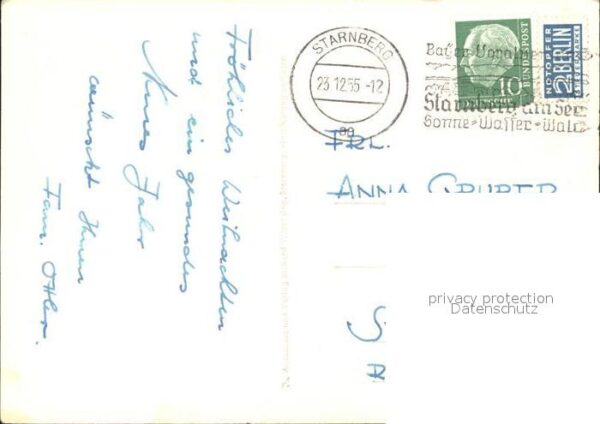 Fröhliches Weihnachten
und ein gesundes
Neues Jahr
wünscht Ihnen
Fam.
STARNBERG
23.12.55-12
Starnberg am See
Sonne-Wasser-Wald
10
DEUTSCHE BUNDESPOST
NOTOPFER
2 BERLIN
STEUERMARKE
FRL.
ANNA GRUBER
privacy protection
Datenschutz